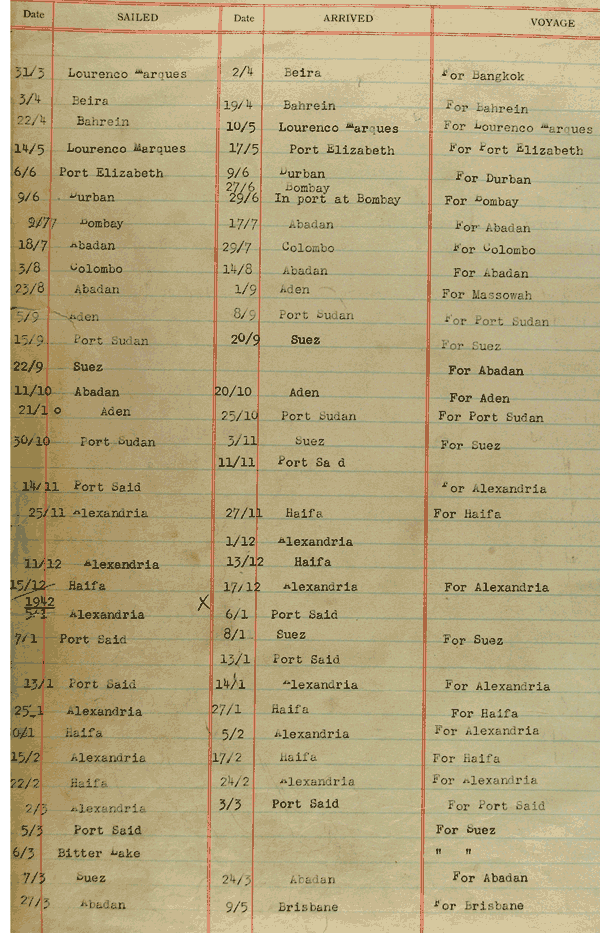 Date SAILED Date ARRIVED VOYAGE
31/3 Lourenco Marques 2/4 Beira For Bangkok
3/4 Beira 19/4 Bahrein For Bahrein
22/4 Bahrein 10/5 Lourenco Marques For Lourenco Marques
14/5 Lourenco Marques 17/5 Port Elizabeth For Port Elizabeth
6/6 Port Elizabeth 9/6 Durban For Durban
27/6 Bombay
9/6 Durban 29/6 In port at Bombay For Bombay
9/77 Bombay 17/7 Abadan For Abadan
18/7 Abadan 29/7 Colombo For Colombo
3/8 Colombo 14/8 Abadan For Abadan
23/8 Abadan 1/9 Aden For Massowah
5/9 Aden 8/9 Port Sudan For Port Sudan
15/9 Port Sudan 20/9 Suez For Suez
22/9 Suez For Abadan
11/10 Abadan 20/10 Aden For Aden
21/1 o Aden 25/10 Port Sudan For Port Sudan
30/10 Port Sudan 3/11 Suez For Suez
11/11 Port Sa d
14/11 Port Said For Alexandria
25/11 Alexandria 27/11 Haifa For Haifa
1/12 Alexandria
11/12 Alexandria 13/12 Haifa
15/12 Haifa 17/12 Alexandria For Alexandria
1942 X
5/1 Alexandria 6/1 Port Said
7/1 Port Said 8/1 Suez For Suez
13/1 Port Said
13/1 Port Said 14/1 Alexandria For Alexandria
25/1 Alexandria 27/1 Haifa For Haifa
Haifa 5/2 Alexandria For Alexandria
15/2 Alexandria 17/2 Haifa For Haifa
22/2 Haifa 24/2 Alexandria For Alexandria
2/3 Alexandria 3/3 Port Said For Port Said
5/3 Port Said For Suez
6/3 Bitter Lake " "
7/3 Suez 24/3 Abadan For Abadan
27/3 Abadan 9/5 Brisbane For Brisbane